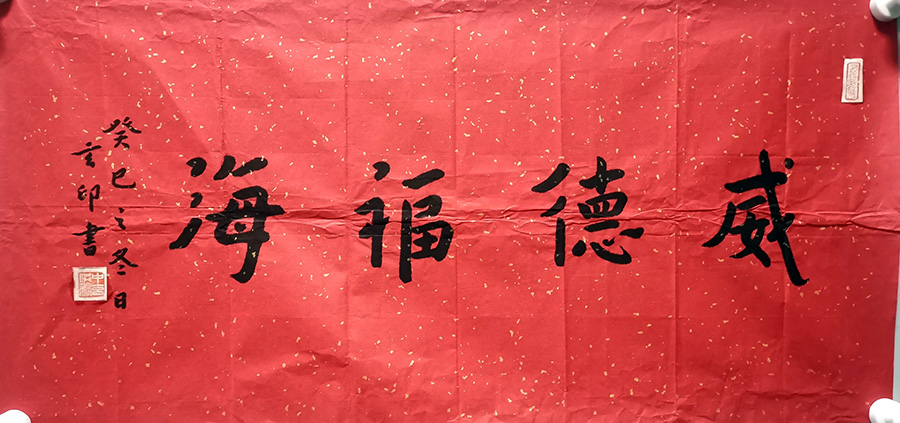 威德福海
癸巳之冬日
玄印書